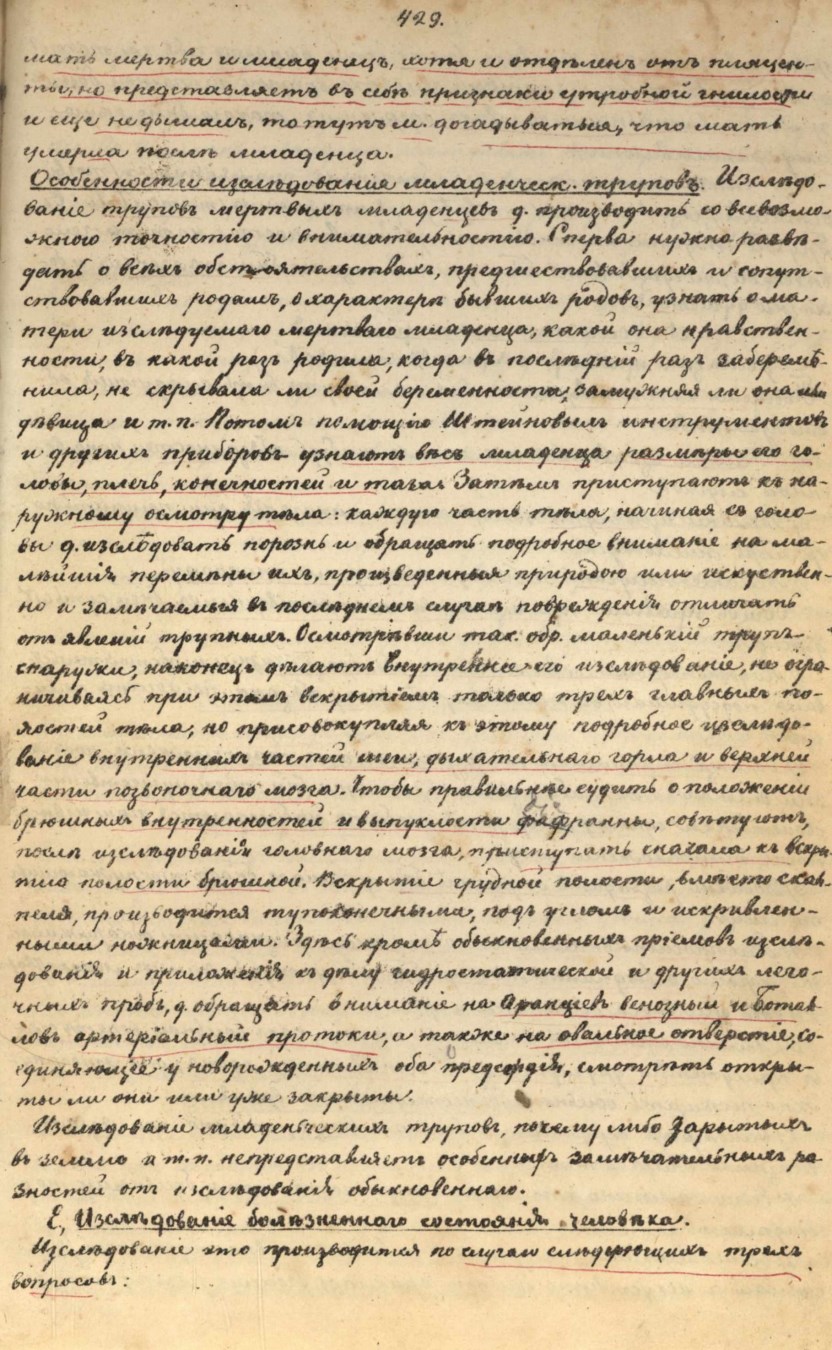 429.
мать мертва и младенецъ, хотя и отдѣленъ отъ пляцен-
ты, но представляетъ въ себѣ признаки утробной гнилости
и еще не дышалъ, то тутъ м. догадываться, что мать
умерла послѣ младенца.
Особенности изслѣдования младенческ. труповъ. Изслѣдо-
ваніе труповъ мертвыхъ младенцевъ д. производить со всевозмо-
жною точностію и внимательностію. Сперва нужно развѣ-
дать о всѣхъ обстоятельствахъ, предшествовавшихъ и сопут-
ствовавшихъ родамъ, о характерѣ бывшихъ родовъ, узнать о ма-
тери изслѣдуемаго мертваго младенца, какой она нравствен-
ности, въ какой разъ родила, когда въ послѣдній разъ заберемѣ-
нила, не скрывала ли своей беременности, замужняя ли она или
дѣвица и т. п. Потомъ помощію Штейновыхъ инструментовъ
и другихъ приборовъ узнаютъ вѣсъ младенца размѣры его го-
ловы, плечъ, конечностей и таза. Затѣмъ приступаютъ къ на-
ружному осмотру тѣла: каждую часть тѣла, начиная съ голо-
вы д. изслѣдовать порознь и обращать подробное вниманіе на ма-
лѣйшія перемѣны ихъ, произведенныя природою или искуствен-
но и замѣчаемыя въ послѣднемъ случаѣ поврежденія отличать
отъ явленій трупныхъ. Осмотрѣвши так. обр. маленькій трупъ
снаружи, наконецъ дѣлаютъ внутреннее его изслѣдованіе, не огра-
ничиваясь при этомъ вскрытіемъ только трехъ главныхъ по-
лостей тѣла, но присовокупляя къ этому подробное изслѣдо-
ваніе внутреннихъ частей шеи, дыхательнаго горла и верхней
части позвоночнаго мозга. Чтобы правильнѣе судить о положеніи
брюшныхъ внутренностей и выпуклости діафрагмы, совѣтуютъ,
послѣ изслѣдованія головнаго мозга, приступать сначала къ вскры-
тію полости брюшной. Вскрытіе грудной полости, вмѣсто скаль-
пеля, производится тупоконечными, подъ угломъ и искривлен-
ными ножницами. Здѣсь кромѣ обыкновенныхъ пріемовъ изслѣ-
дованія и приложенія къ дѣлу гидростатической и другихъ лего-
чныхъ пробъ, д. обращать вниманіе на Аранціевъ венозный и Ботал-
ловъ артеріальный протоки, а также на овальное отверстіе, со-
единяющее у новорожденныхъ оба предсердія, смотрѣть откры-
ты ли они или уже закрыты.
Изслѣдованіе младенческихъ труповъ, почему либо зарытыхъ
въ землю и т. п. непредставляетъ особенныхъ замѣчательныхъ ра-
зностей отъ изслѣдованія обыкновеннаго.
Е, Изслѣдованіе болѣзненнаго состоянія человѣка.
Изслѣдованіе это производится по случаю слѣдующихъ трехъ
вопросовъ: